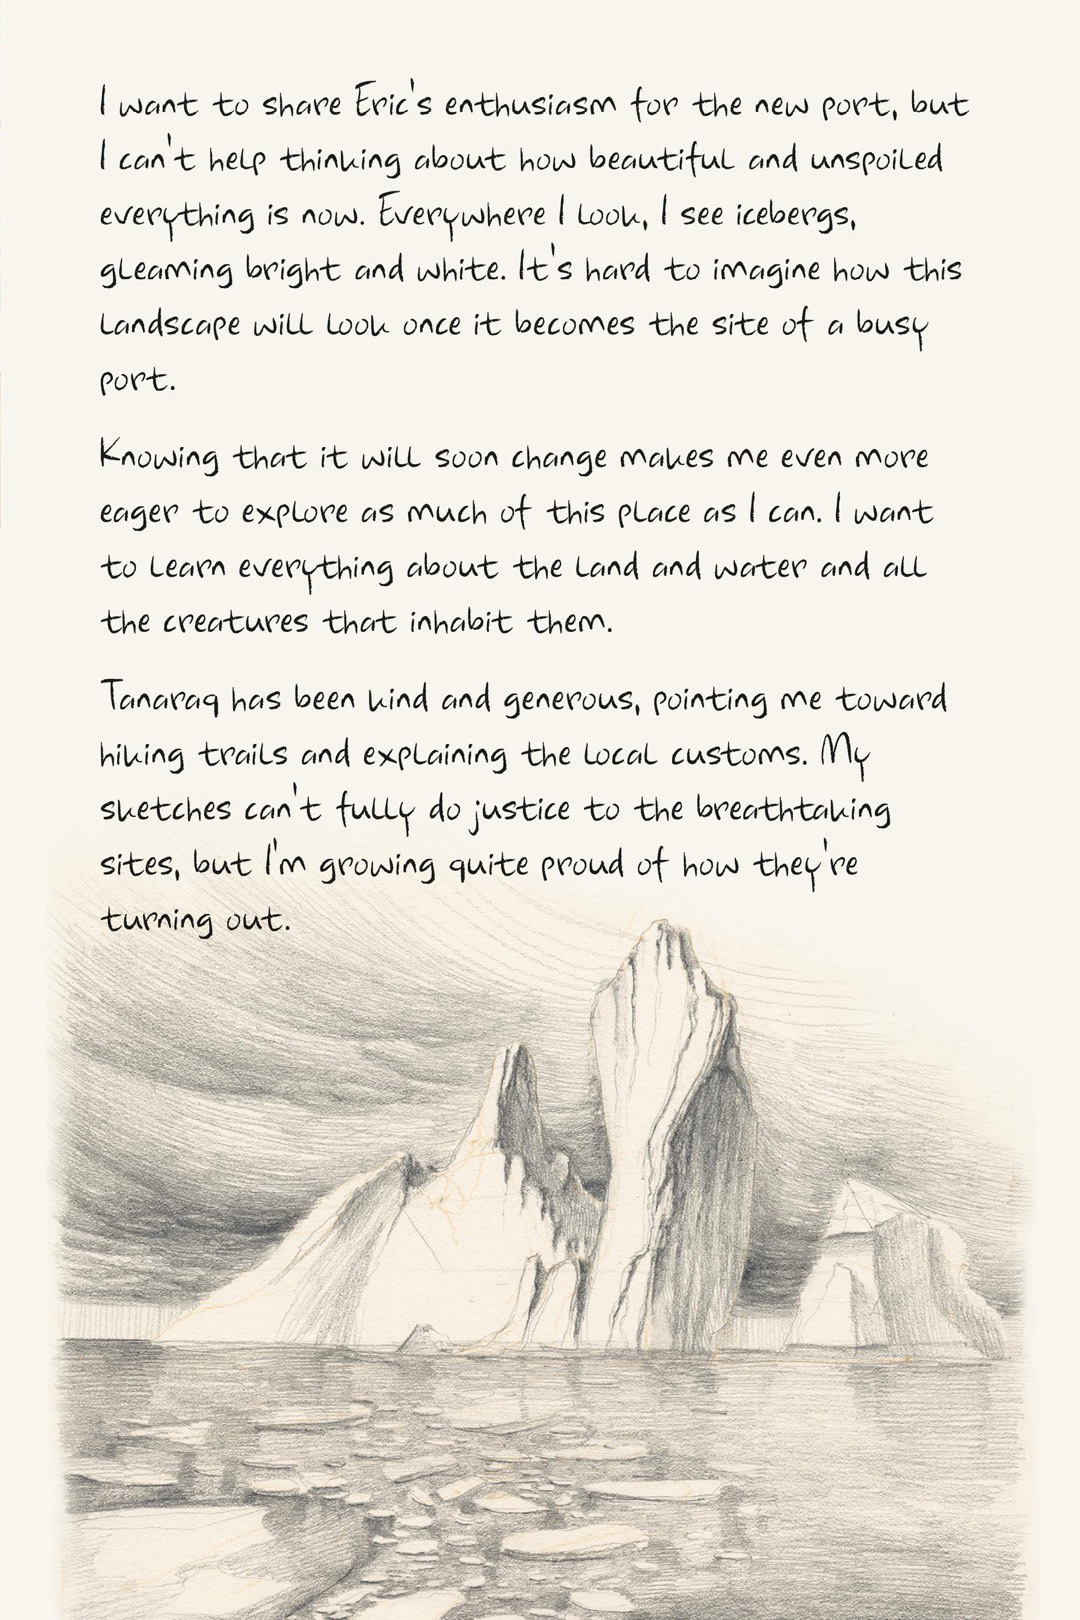 I want to share Eric's enthusiasm for the new port, but
I can't help thinking about how beautiful and unspoiled
everything is now. Everywhere I look, I see icebergs,
gleaming bright and white. It's hard to imagine how this
landscape will look once it becomes the site of a busy
port.
Knowing that it will soon change makes me even more
eager to explore as much of this place as I can. I want
to learn everything about the land and water and all
the creatures that inhabit them.
Tanaraq has been kind and generous, pointing me toward
hiking trails and explaining the local customs. My
sketches can't fully do justice to the breathtaking
sites, but I'm growing quite proud of how they're
turning out.